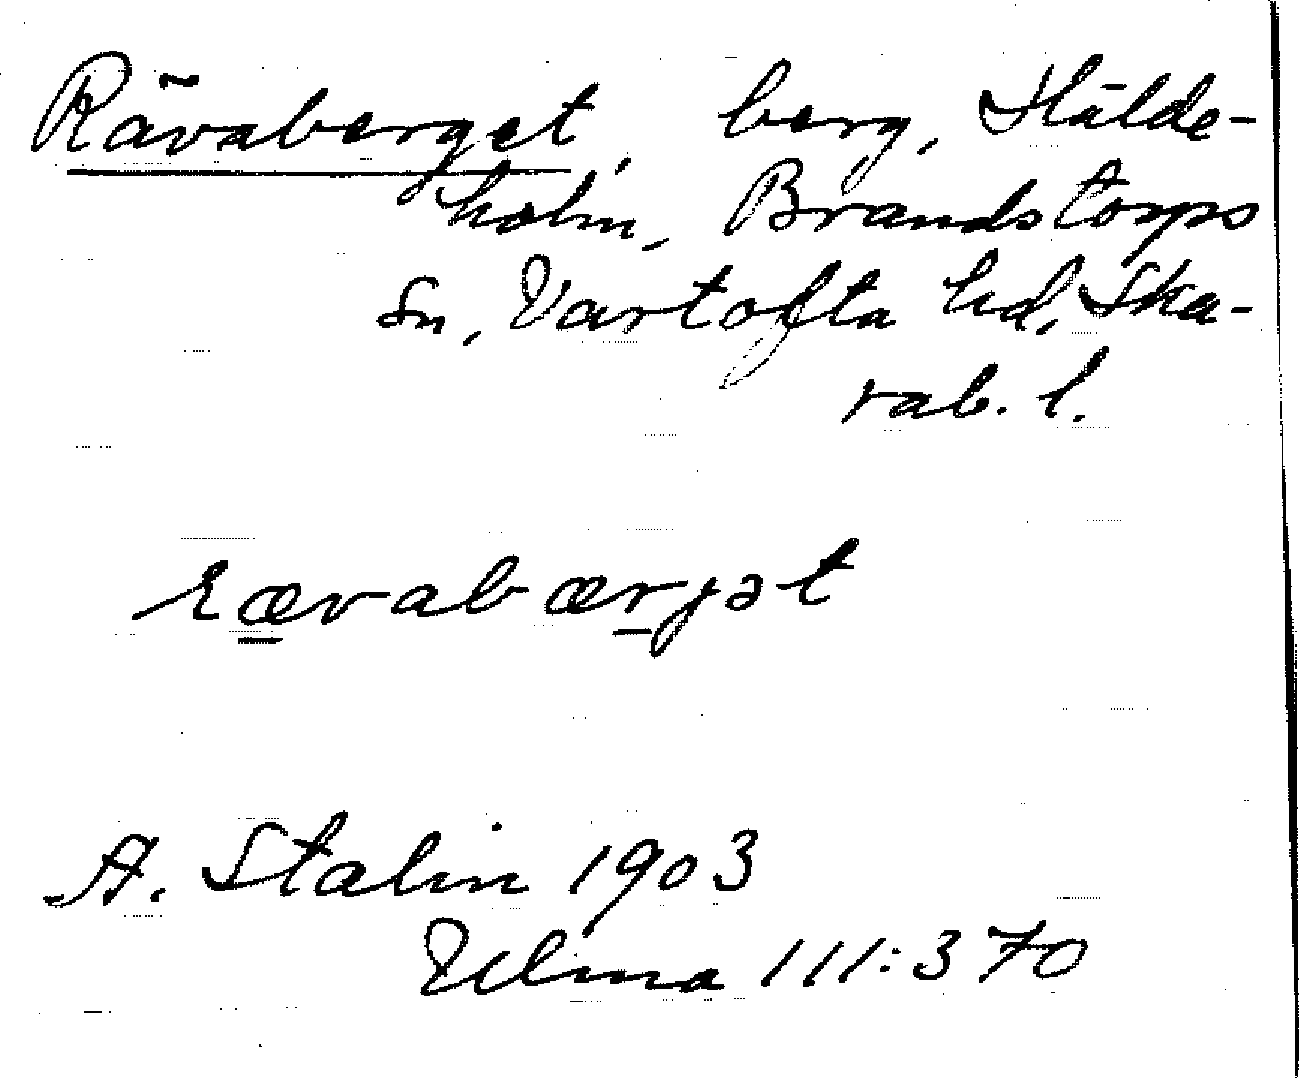 Rävaberget, berg, Hälde-
holm, Brandstorps
sn, Vartofta hd, Ska-
rab. l.
rævabærjət
A. Stalin 1903
Ulma 111:370